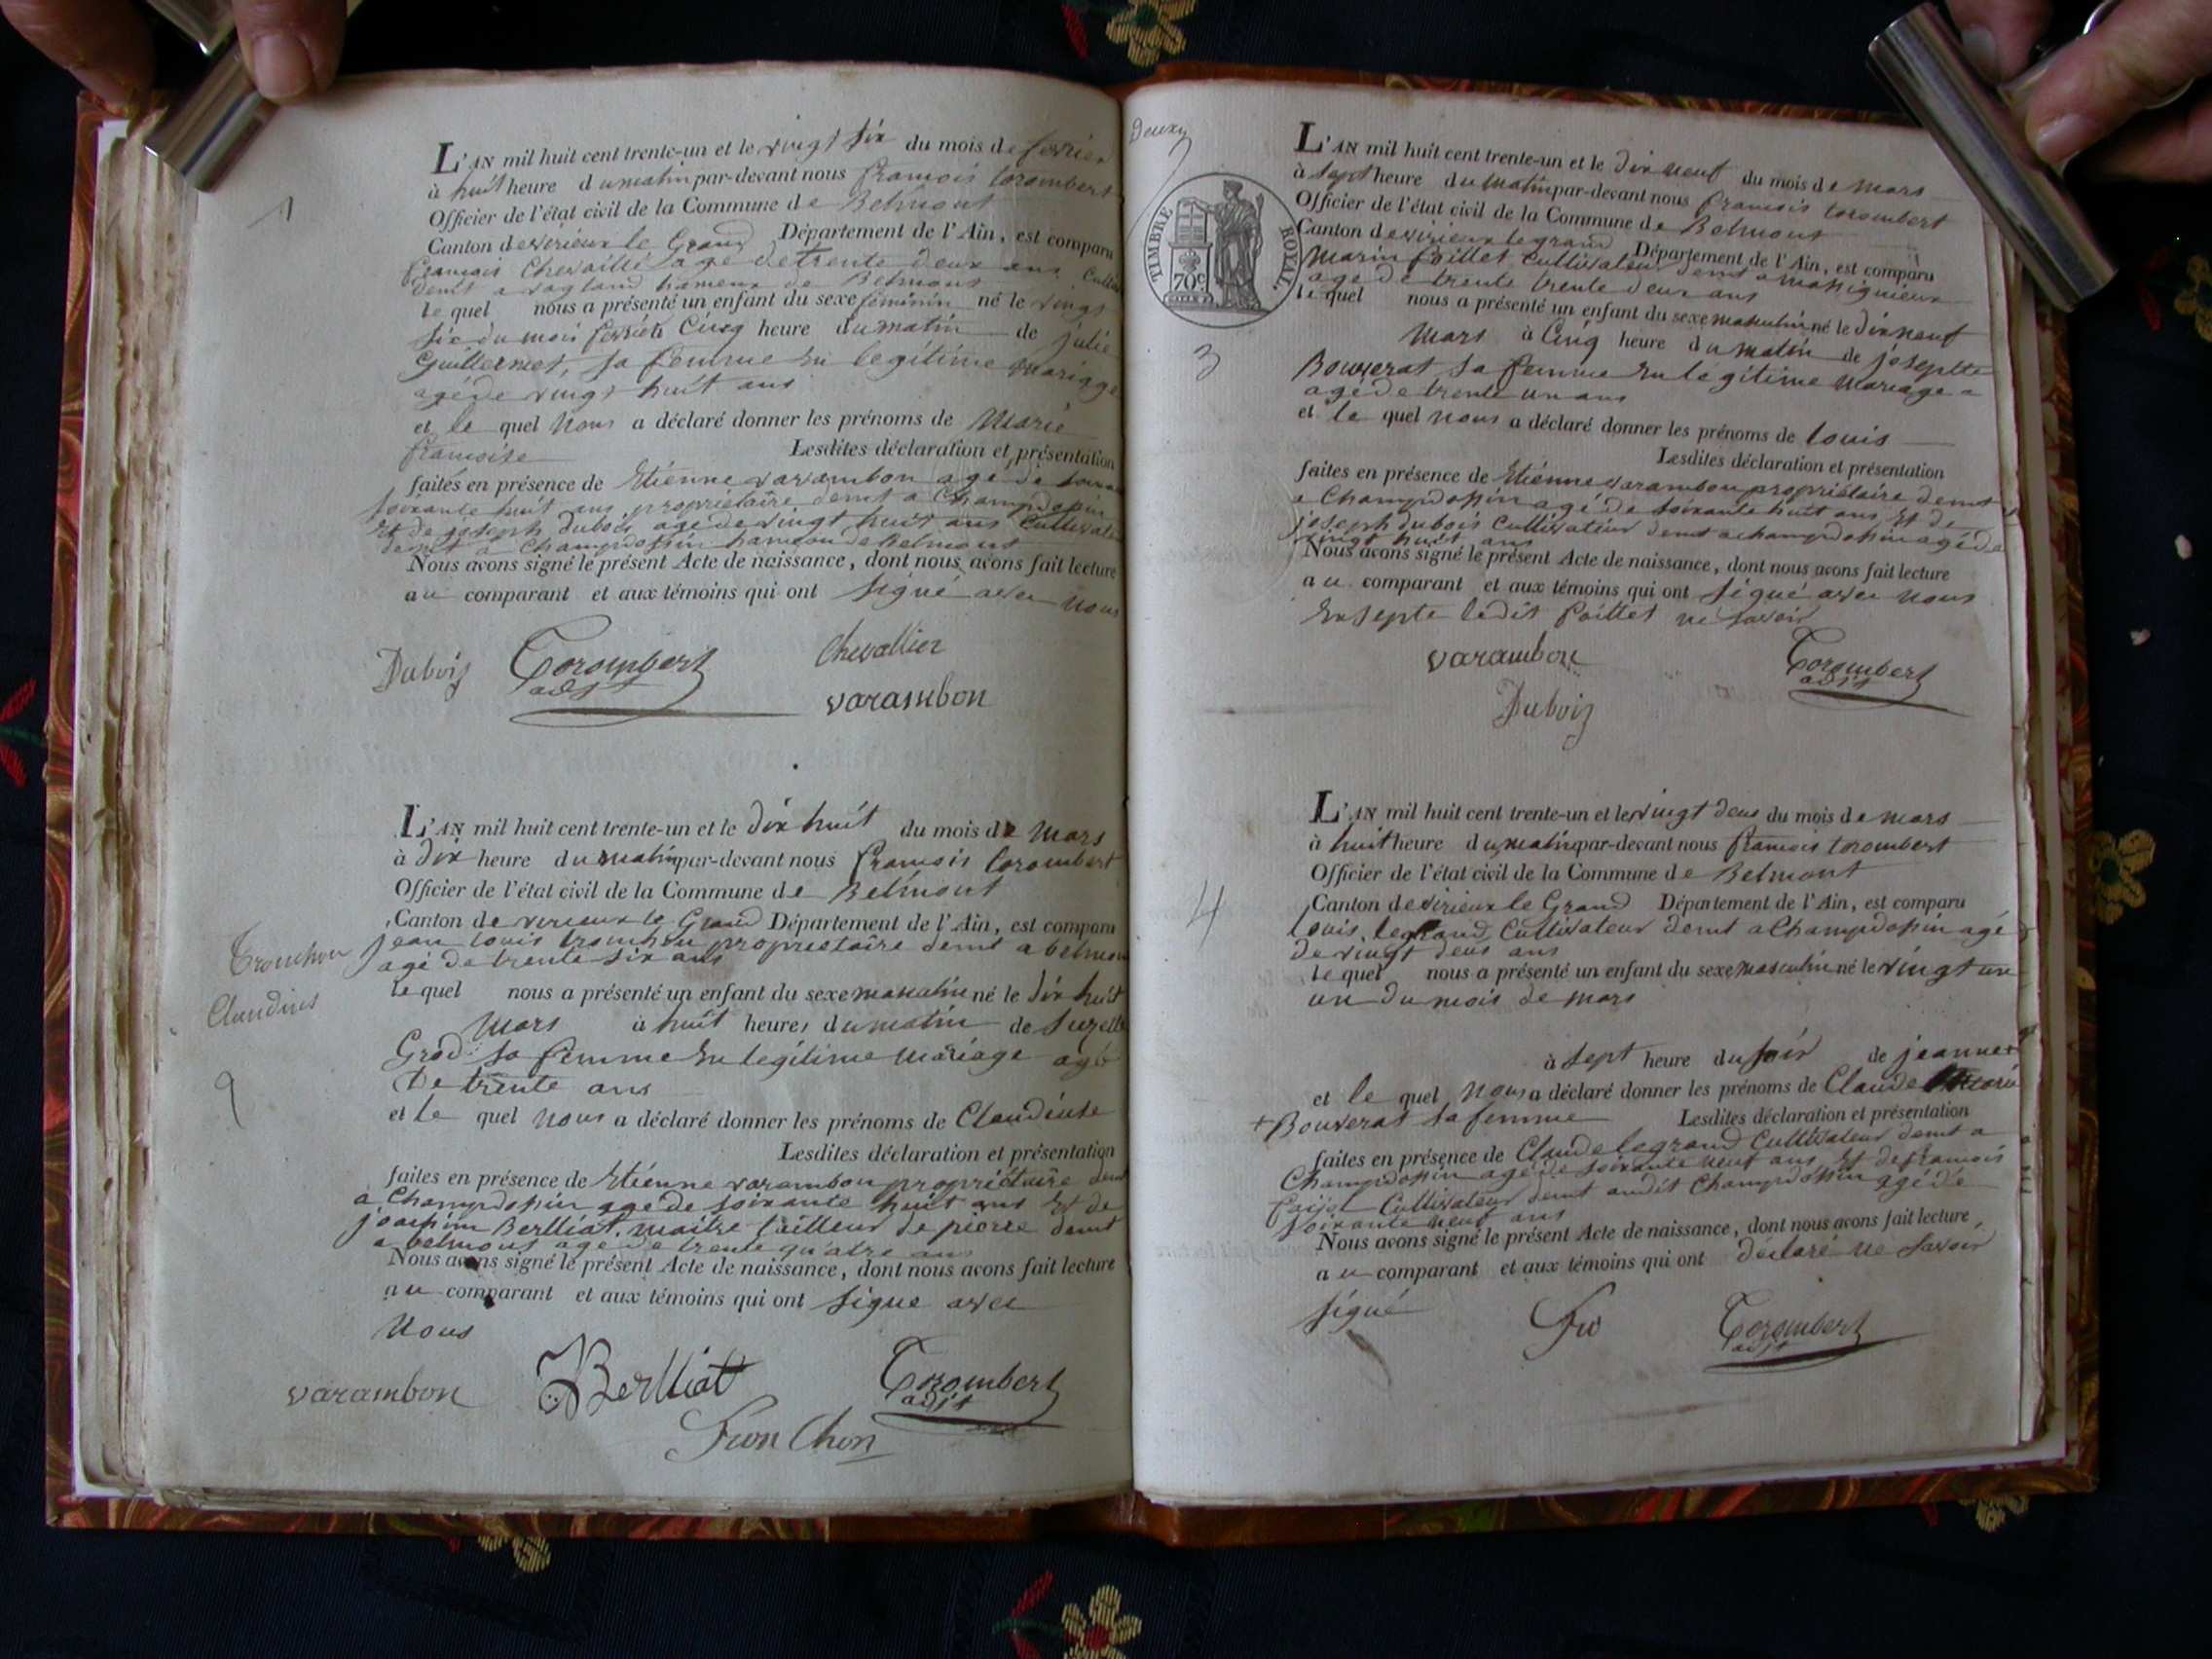 1
L'AN mil huit cent trente-un et le vingt six du mois de fevrier
à huit heure du matin par-devant nous francois torombert
Officier de l'état civil de la Commune de Belmont
Canton de virieux le Grand Département de l'Ain, est comparu
francois Chevallié agé de trente deux ans
demt a vogland hameux de Belmont
le quel nous a présenté un enfant du sexe féminin né le vingt
six du mois fevrié à Cinq heure du matin de julie
Guillermet, sa femme en legitime mariage
agé de vingt huit ans
et le quel nous a déclaré donner les prénoms de Marie
francoise Lesdites déclaration et présentation
faites en présence de Etienne varambon agé de
soixante huit ans propriétaire demt a Champdossin
Et de joseph dubois agé de vingt huit ans Cultivateur
demt a Champdossin hameau de Belmont
Nous avons signé le présent Acte de naissance, dont nous avons fait lecture
au comparant et aux témoins qui ont signé avec nous
Dubois Torombert Chevallier
adjt
varambon
L'AN mil huit cent trente-un et le dix huit du mois de Mars
à dix heure du matin par-devant nous francois torombert
Officier de l'état civil de la Commune de Belmont
Canton de virieux le Grand Département de l'Ain, est comparu
jean louis tronchon propriétaire demt a belmont
agé de trente six ans
Tronchon
Claudius
le quel nous a présenté un enfant du sexe masculin né le dix huit
Mars à huit heures du matin de Suzette
Grod sa femme En legitime mariage agé
de trente ans
et le quel nous a déclaré donner les prénoms de Claudiuse
Lesdites déclaration et présentation
faites en présence de Etienne varambon propriétaire demt
a Champdossin agé de soixante huit ans Et de
joachim Berlliat, maitre tailleur de pierre demt
a belmont agé de trente quatre ans
Nous avons signé le présent Acte de naissance, dont nous avons fait lecture
au comparant et aux témoins qui ont signe avec
nous
varambon Berlliat Torombert
adjt
Tron Chon
Deux
TIMBRE ROYAL
70c
L'AN mil huit cent trente-un et le dix neuf du mois de mars
à sept heure du matin par-devant nous francois torombert
Officier de l'état civil de la Commune de Belmont
Canton de virieux le grand Département de l'Ain, est comparu
Marin Paillet Cultivateur demt a massignieux
agé de trente trente deux ans
le quel nous a présenté un enfant du sexe masculin né le dix neuf
3
Mars à Cinq heure du matin de josephte
Bouverat sa femme En légitime mariage
agé de trente un ans
et le quel nous a déclaré donner les prénoms de louis
Lesdites déclaration et présentation
faites en présence de Etienne varambon propriétaire demt
a Champdossin agé de soixante huit ans Et de
joseph dubois Cultivateur demt a champdossin agé de
vingt huit ans
Nous avons signé le présent Acte de naissance, dont nous avons fait lecture
au comparant et aux témoins qui ont signé avec nous
Ensepte ledit Paillet ne savoir
varambon Torombert
adjt
Dubois
L'AN mil huit cent trente-un et le vingt deus du mois de mars
à huit heure du matin par-devant nous francois torombert
Officier de l'état civil de la Commune de Belmont
4
Canton de virieux le Grand Département de l'Ain, est comparu
louis legrand Cultivateur demt a Champdossin agé
de vingt deus ans
le quel nous a présenté un enfant du sexe masculin né le vingt un
un du mois de mars
à sept heure du soir de jeanne +
et le quel nous a déclaré donner les prénoms de Claude Marie
+ Bouverat sa femme Lesdites déclaration et présentation
faites en présence de Claude legrand Cultivateur demt a
Champdossin agé de soixante neuf ans Et de francois
Cultivateur demt audit Champdossin agé de
soixante neuf ans
Nous avons signé le présent Acte de naissance, dont nous avons fait lecture
au comparant et aux témoins qui ont déclaré ne savoir
signé Torombert
adjt